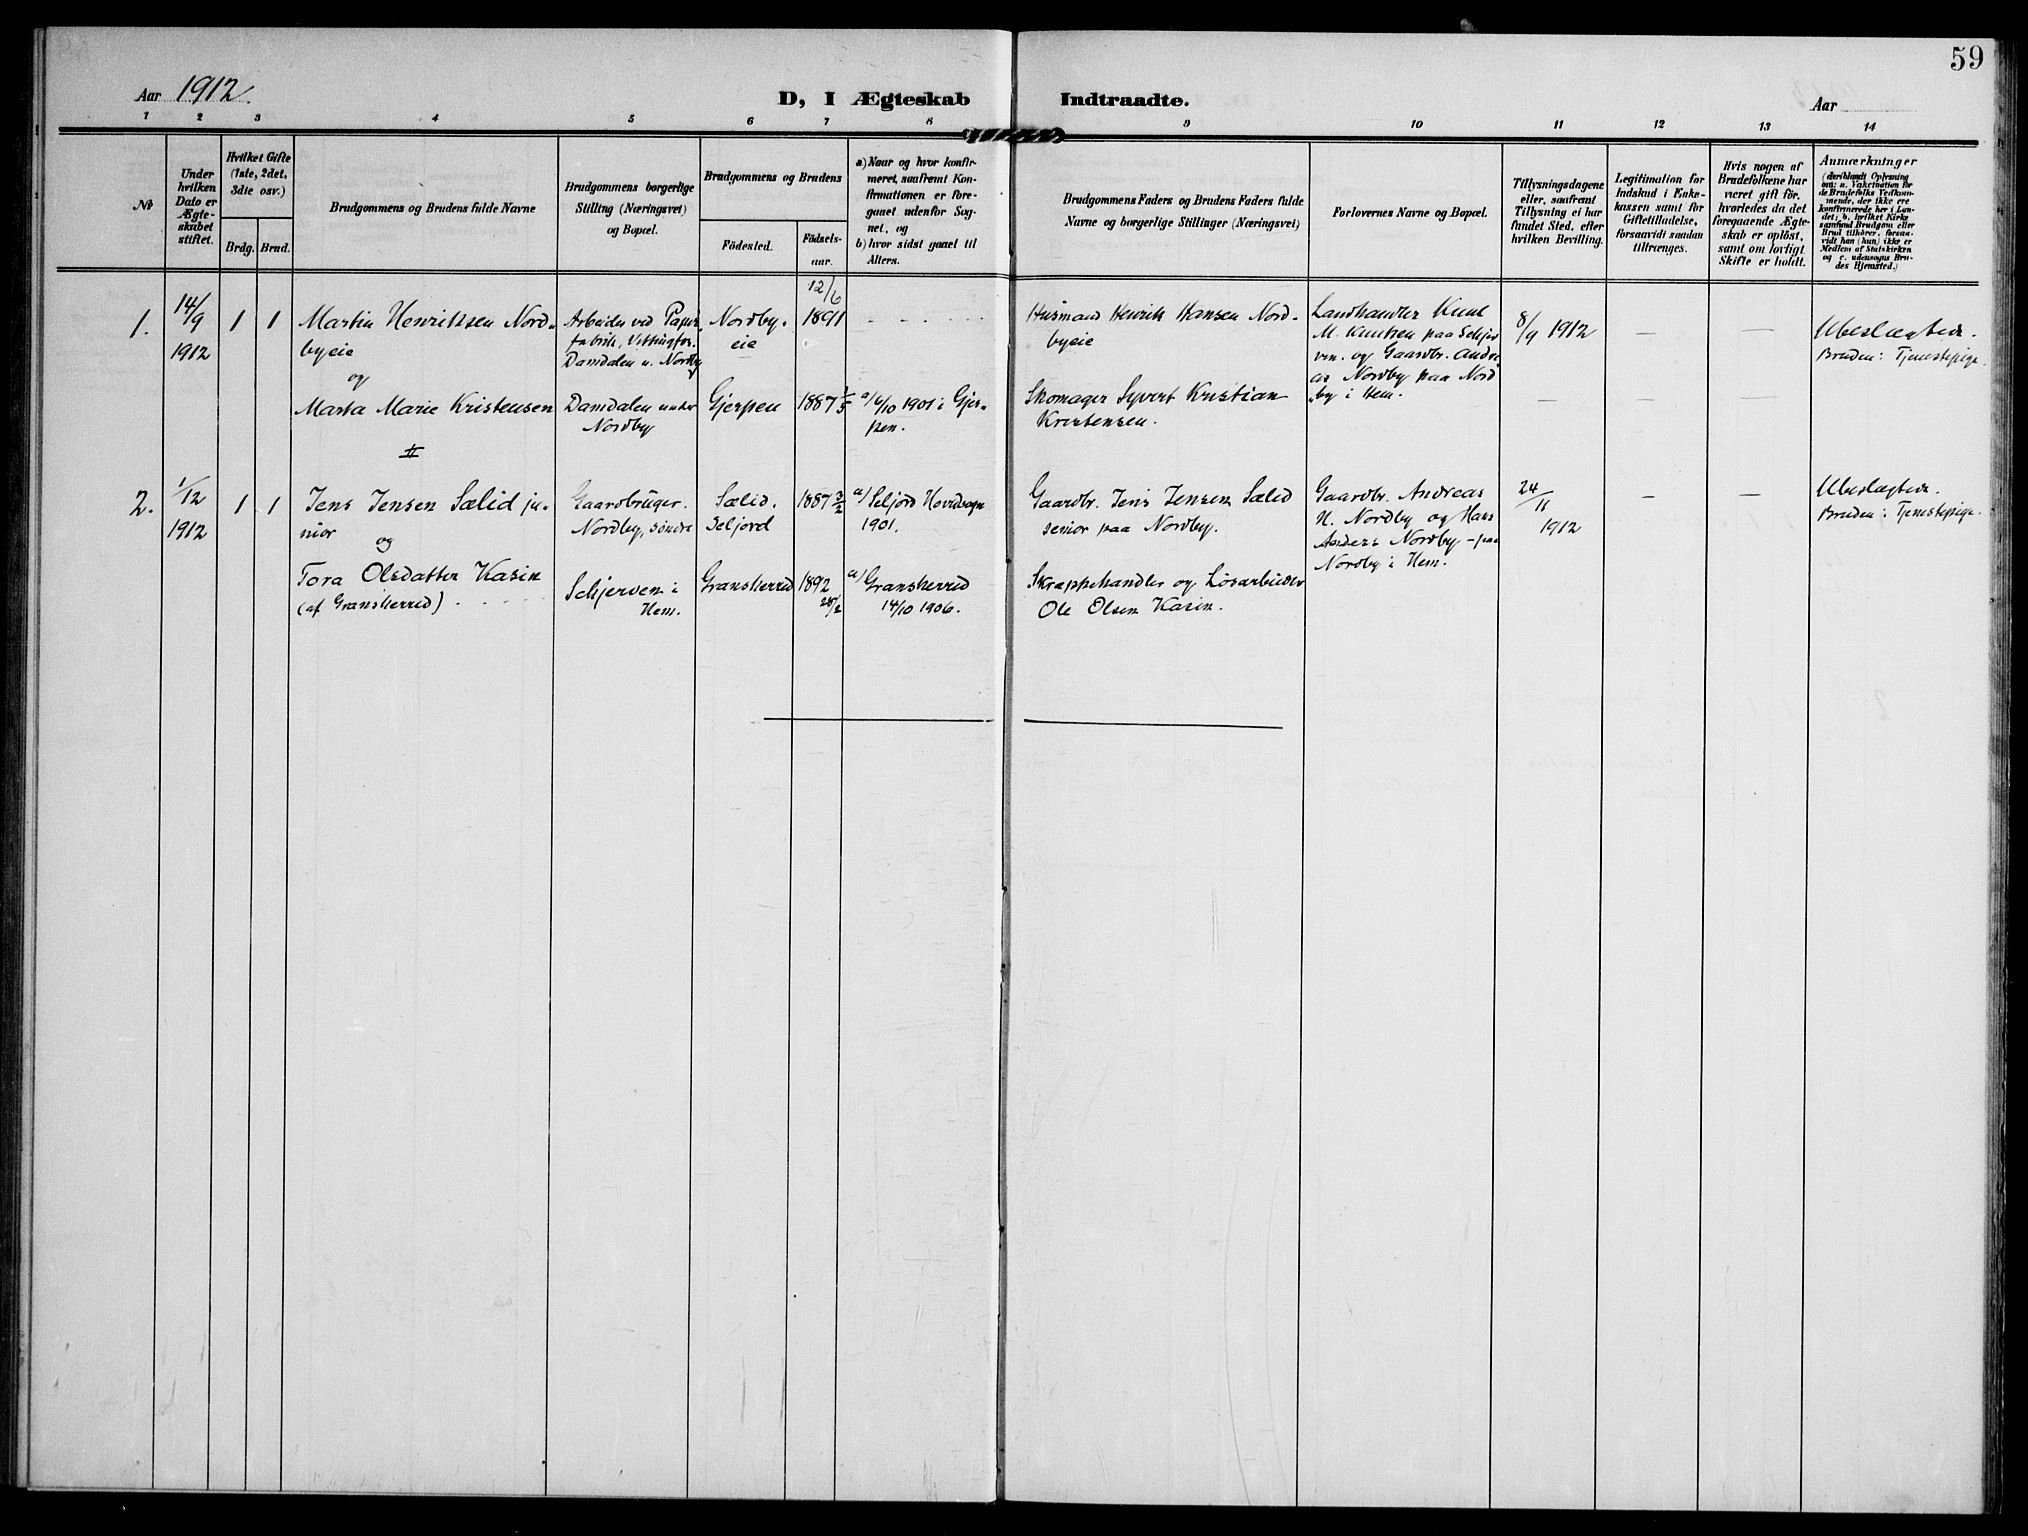 59
Aar 1912.
D, I Ægteskab Indtraadte.
Aar
1 2 3 4 5 6 7 8 9 10 11 12 13 14
No
Under
hvilken
Dato er
Ægte-
skabet
stiftet.
Hvilket Gifte
(1ste, 2det,
3die osv.)
Brdg. Brud.
Brudgommens og Brudens fulde Navne
Brudgommens borgerlige
Stilling (Næringsvei)
og Bopæl.
Brudgommens og Brudens
Födested.
Födsels-
aar.
a) Naar og hvor konfir-
meret, saafremt Kon-
firmationen er fore-
gaaet udenfor Sog-
net, og
b) hvor sidst gaaet til
Alters.
Brudgommens Faders og Brudens Faders fulde
Navne og borgerlige Stillinger (Næringsvei)
Forlovernes Navne og Bopæl.
Tillysningsdagene
eller, saafremt
Tillysning ei har
fundet Sted, efter
hvilken Bevilling.
Legitimation for
Indskud i Enke-
kassen samt for
Giftetilladelse,
forsaavidt saadan
tiltrænges.
Hvis nogen af
Brudefolkene har
været gift för,
hvorledes da det
foregaaende Ægte-
skab er oplöst,
samt om lovligt
Skifte er holdt.
Anmærkninger
(deriblandt Oplysning
om: a. Vakcination for
de Brudefolks Vedkom-
mende, der ikke ere
konfirmerede her i Lan-
det; b. hvilket Kirke-
samfund Brudgom eller
Brud tilhörer, forsaa-
vidt han (hun) ikke er
Medlem af Statskirken
og c. udensogns Bru-
des Hjemsted.)
1.
14/9
1912
1 1
Martin Henriksen Nord-
byeie
og
Marta Marie Kristensen
Arbeider ved Papir-
fabrik, Vittingfos.
Damdalen u. Nordby
Damdalen under
Nordby
Nordby-
eie
Gjerpen
12/6
1891
1887 1/5
a/ 6/10 1901 i Gjer-
pen.
Husmand Henrik Hansen Nord-
byeie
Skomager Syvert Kristian
Kristensen.
Landhandler Knut
M. Knutsen paa Schjer
ven. og Gaardbr. Andre
as Nordby paa Nord
by i Hem.
8/9 1912
Ubeslægtede.
Bruden: Tjenestepige
2.
1/12
1912
1 1
Jens Jensen Sælid ju-
nior
og
Tora Olsdatter Kasin
(af Gransherred)
Gaardbruger.
Nordby, söndre
Schjerven i
Hem.
Sælid.
Seljord
Gransherred
1887 3/2
1892
28/2
a/ Seljord Hovedsogn
1901.
a/ Gransherred
14/10 1906.
Gaardbr. Jens Jensen Sælid
senior paa Nordby.
Skræppehandler og Lösarbeider
Ole Olsen Kasin.
Gaardbr. Andreas
H. Nordby og Hans
Anders Nordby - paa
Nordby i Hem.
24/11
1912
Ubeslægtede.
Bruden: Tjenestepige